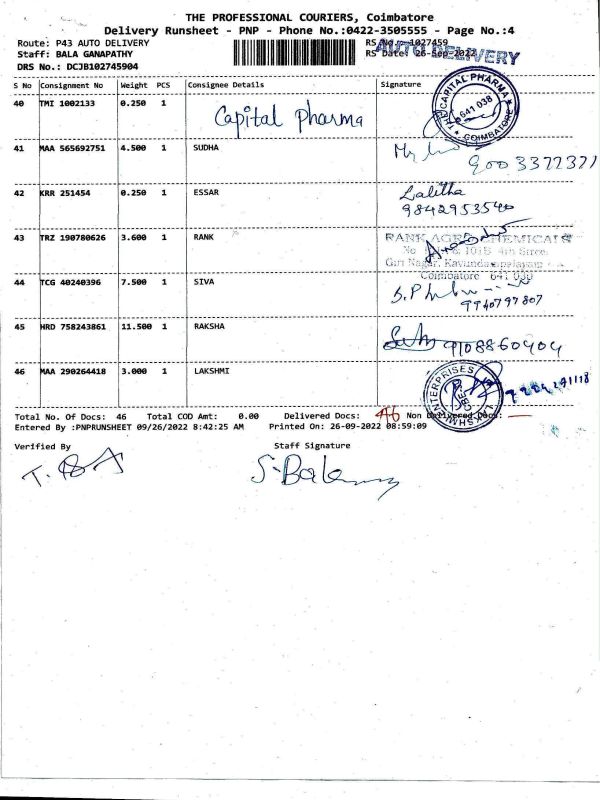 THE PROFESSIONAL COURIERS, Coimbatore
Delivery Runsheet - PNP - Phone No.:0422-3505555 - Page No.:4
Route: P43 AUTO DELIVERY RS No.: 1027459
AUTO DELIVERY
Staff: BALA GANAPATHY RS Date: 26-Sep-2022
DRS No.: DCJB102745904
S No Consignment No Weight PCS Consignee Details Signature
40 TMI 1002133 0.250 1 Capital Pharma
CAPITAL PHARMA 641 038 COIMBATORE
41 MAA 565692751 4.500 1 SUDHA
42 KRR 251454 0.250 1 ESSAR Lalitha
9842953540
43 TRZ 190780626 3.600 1 RANK RANK AGRO CHEMICALS
No 101B 4th Street
Giri Nagar, Kavundampalayam
Coimbatore 641 030
44 TCG 40240396 7.500 1 SIVA
9940797807
45 HRD 758243861 11.500 1 RAKSHA 9108860404
46 MAA 290264418 3.000 1 LAKSHMI
LAKSHMI ENTERPRISES CBE
Total No. Of Docs: 46 Total COD Amt: 0.00 Delivered Docs: 46 Non Delivered Docs:
Entered By :PNPRUNSHEET 09/26/2022 8:42:25 AM Printed On: 26-09-2022 08:59:09
Verified By Staff Signature
S. Bala